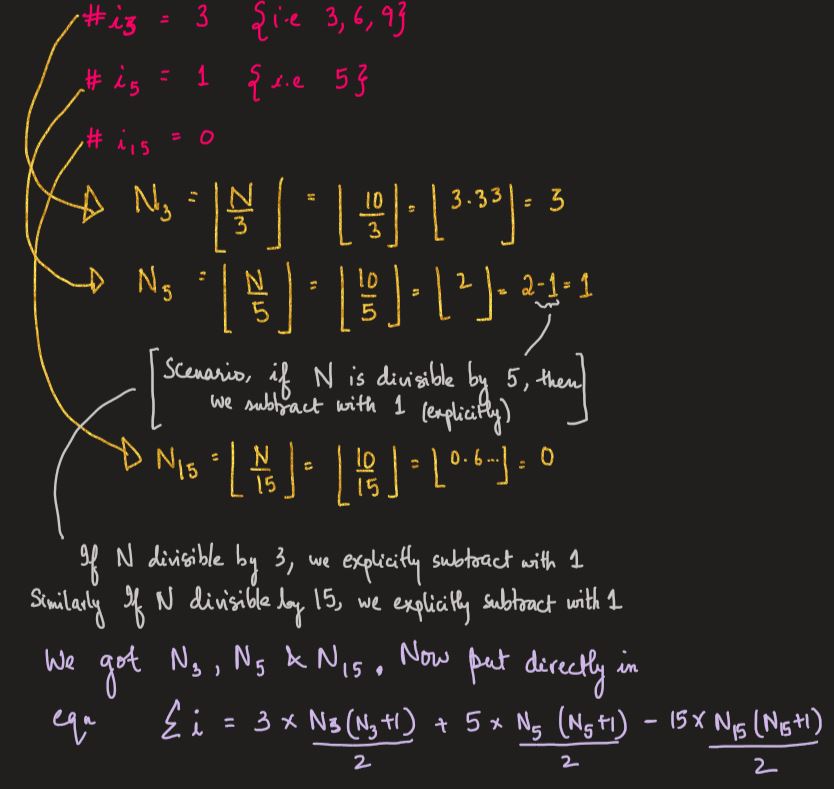 # i₃ = 3 {i.e 3, 6, 9}
# i₅ = 1 {i.e 5}
# i₁₅ = 0
N₃ = ⌊N/3⌋ = ⌊10/3⌋ = ⌊3.33⌋ = 3
N₅ = ⌊N/5⌋ = ⌊10/5⌋ = ⌊2⌋ = 2-1 = 1
[Scenario, if N is divisible by 5, then
we subtract with 1 (explicitly)]
N₁₅ = ⌊N/15⌋ = ⌊10/15⌋ = ⌊0.6...⌋ = 0
If N divisible by 3, we explicitly subtract with 1
Similarly If N divisible by 15, we explicitly subtract with 1
We got N₃, N₅ & N₁₅. Now put directly in
eqn Σi = 3 × N₃(N₃+1)/2 + 5 × N₅(N₅+1)/2 - 15 × N₁₅(N₁₅+1)/2